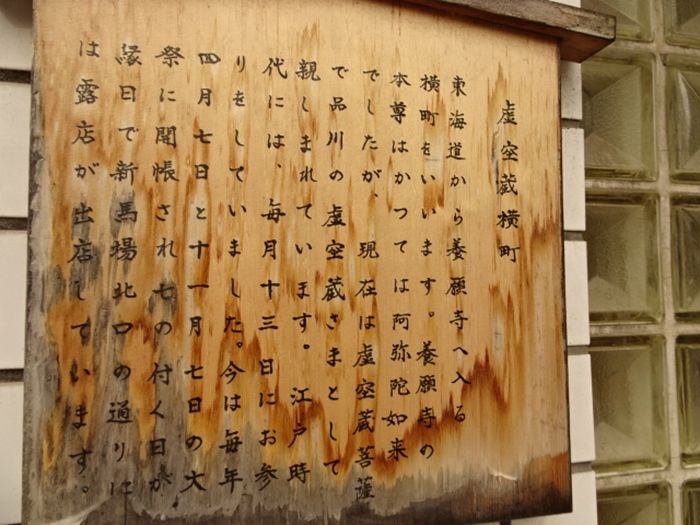 虚空蔵横町
東海道から養願寺へ入る
横町をいいます。養願寺の
本尊はかつては阿弥陀如来
でしたが、現在は虚空蔵菩薩
で品川の虚空蔵さまとして
親しまれています。江戸時
代には、毎月十三日にお参
りをしていました。今は毎年
四月七日と十一月七日の大
祭に開帳され七の付く日が
縁日で新馬場北口の通りに
は露店が出店しています。